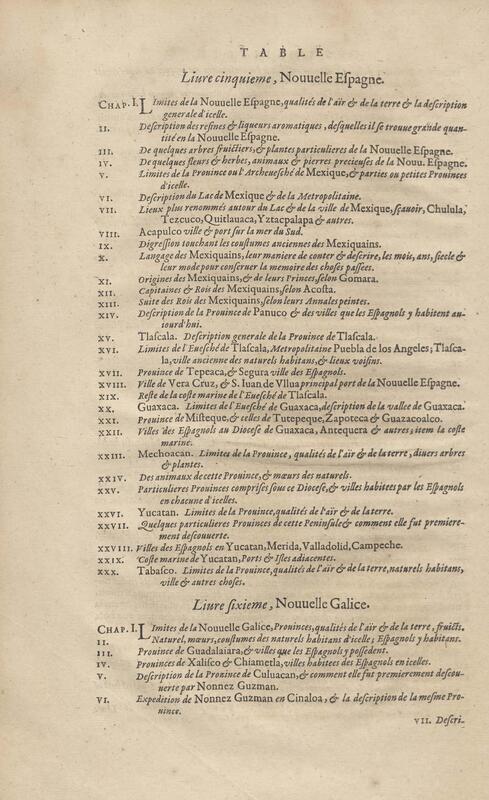 TABLE
Liure cinquieme, Nouuelle Eſpagne.
CHAP. I. Limites de la Nouuelle Eſpagne, qualités de l'air & de la terre & la deſcription
generale d'icelle.
II. Deſcription des reſines & liqueurs aromatiques, deſquelles il ſe trouue grande quan-
tité en la Nouuelle Eſpagne.
III. De quelques arbres fruictiers, & plantes particulieres de la Nouuelle Eſpagne.
IV. De quelques fleurs & herbes, animaux & pierres precieuſes de la Nouu. Eſpagne.
V. Limites de la Prouince ou l'Archeueſché de Mexique, & parties ou petites Prouinces
d'icelle.
VI. Deſcription du Lac de Mexique & de la Metropolitaine.
VII. Lieux plus renommés autour du Lac & de la ville de Mexique, ſçauoir, Chulula,
Tezcuco, Quitlauaca, Yztacpalapa & autres.
VIII. Acapulco ville & port ſur la mer du Sud.
IX. Digreſſion touchant les couſtumes anciennes des Mexiquains.
X. Langage des Mexiquains, leur maniere de conter & deſcrire, les mois, ans, ſiecle &
leur mode pour conſeruer la memoire des choſes paſſees.
XI. Origines des Mexiquains, & de leurs Princes, ſelon Gomara.
XII. Capitaines & Rois des Mexiquains, ſelon Acoſta.
XIII. Suite des Rois des Mexiquains, ſelon leurs Annales peintes.
XIV. Deſcription de la Prouince de Panuco & des villes que les Eſpagnols y habitent au-
iourd'hui.
XV. Tlaſcala. Deſcription generale de la Prouince de Tlaſcala.
XVI. Limites de l'Eueſché de Tlaſcala, Metropolitaine Puebla de los Angeles; Tlaſca-
la, ville ancienne des naturels habitans, & lieux voiſins.
XVII. Prouince de Tepeaca, & Segura ville des Eſpagnols.
XVIII. Ville de Vera Cruz, & S. Iuan de Vllua principal port de la Nouuelle Eſpagne.
XIX. Reſte de la coſte marine de l'Eueſché de Tlaſcala.
XX. Guaxaca. Limites de l'Eueſché de Guaxaca, deſcription de la vallee de Guaxaca.
XXI. Prouince de Miſteque, & celles de Tutepeque, Zapoteca & Guazacoalco.
XXII. Villes des Eſpagnols au Dioceſe de Guaxaca, Antequera & autres; item la coſte
marine.
XXIII. Mechoacan. Limites de la Prouince, qualités de l'air & de la terre, diuers arbres
& plantes.
XXIV. Des animaux de cette Prouince, & mœurs des naturels.
XXV. Particulieres Prouinces compriſes ſous ce Dioceſe, & villes habitees par les Eſpagnols
en chacune d'icelles.
XXVI. Yucatan. Limites de la Prouince, qualités de l'air & de la terre.
XXVII. Quelques particulieres Prouinces de cette Peninſule & comment elle fut premiere-
ment deſcouuerte.
XXVIII. Villes des Eſpagnols en Yucatan, Merida, Valladolid, Campeche.
XXIX. Coſte marine de Yucatan, Ports & Iſles adiacentes.
XXX. Tabaſco. Limites de la Prouince, qualités de l'air & de la terre, naturels habitans,
ville & autres choſes.
Liure ſixieme, Nouuelle Galice.
CHAP. I. Limites de la Nouuelle Galice, Prouinces, qualités de l'air & de la terre, fruicts.
II. Naturel, mœurs, couſtumes des naturels habitans d'icelle; Eſpagnols y habitans.
III. Prouince de Guadalaiara, & villes que les Eſpagnols y poſſedent.
IV. Prouinces de Xaliſco & Chiametla, villes habitees des Eſpagnols en icelles.
V. Deſcription de la Prouince de Culuacan, & comment elle fut premierement deſcou-
uerte par Nonnez Guzman.
VI. Expedition de Nonnez Guzman en Cinaloa, & la deſcription de la meſme Pro-
uince.
VII. Deſcri-